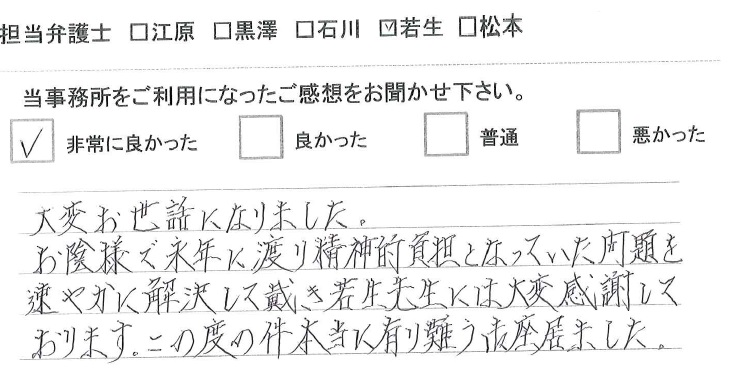 担当弁護士 □江原 □黒澤 □石川 ☑若生 □松本
当事務所をご利用になったご感想をお聞かせ下さい。
☑ 非常に良かった □ 良かった □ 普通 □ 悪かった
大変お世話になりました。
お陰様で永年に渡り精神的負担となっていた問題を
速やかに解決して戴き若生先生には大変感謝して
おります。この度の件本当に有り難う御座居ました。